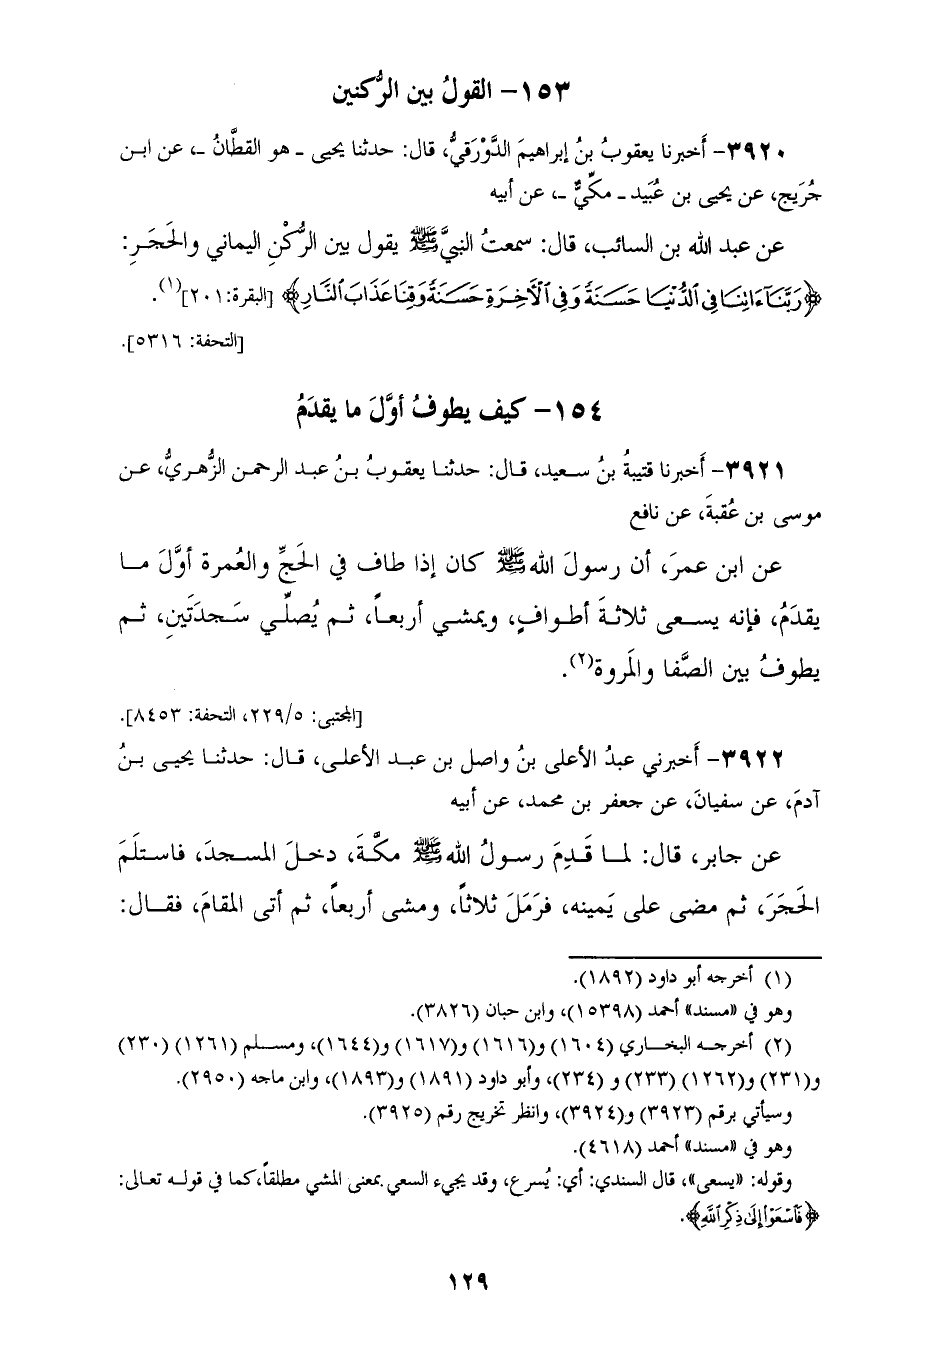 ١٥٣ – القولُ بين الرُّكنين
٣٩٢٠ – أَخبرنا يعقوبُ بنُ إبراهيمَ الدَّوْرَقيُّ، قال: حدثنا يحيى ـ هو القطَّانُ ـ، عن ابن
جُرَيج، عن يحيى بن عُبَيد ـ مكِّيٌّ ـ، عن أبيه
عن عبد الله بن السائب، قال: سمعتُ النبيَّ ﷺ يقول بين الرُّكْنِ اليماني والحَجَرِ:
﴿رَبَّنَآ ءَاتِنَا فِى ٱلدُّنْيَا حَسَنَةً وَفِى ٱلْأَخِرَةِ حَسَنَةً وَقِنَا عَذَابَ ٱلنَّارِ﴾ [البقرة: ٢٠١](١).
[التحفة: ٥٣١٦].
١٥٤ – كيف يطوفُ أوَّلَ ما يقدَمُ
٣٩٢١ – أَخبرنا قتيبةُ بنُ سعيد، قال: حدثنا يعقوبُ بنُ عبد الرحمن الزُّهريُّ، عن
موسى بن عُقبةَ، عن نافع
عن ابن عمرَ، أن رسولَ الله ﷺ كان إذا طاف في الحَجِّ والعُمرة أوَّلَ ما
يقدَمُ، فإنه يسعى ثلاثةَ أطوافٍ، ويمشي أربعاً، ثم يُصلِّي سَجدَتَينِ، ثم
يطوفُ بين الصَّفا والمَروة(٢).
[المجتبى: ٢٢٩/٥، التحفة: ٨٤٥٣].
٣٩٢٢ – أَخبرني عبدُ الأعلى بنُ واصل بن عبد الأعلى، قال: حدثنا يحيى بنُ
آدمَ، عن سفيانَ، عن جعفر بن محمد، عن أبيه
عن جابر، قال: لما قَدِمَ رسولُ الله ﷺ مكَّةَ، دخلَ المسجدَ، فاستلَمَ
الحَجَرَ، ثم مضى على يَمينه، فرَمَلَ ثلاثاً، ومشى أربعاً، ثم أتى المقامَ، فقال:
(١) أخرجه أبو داود (١٨٩٢).
وهو في «مسند» أحمد (١٥٣٩٨)، وابن حبان (٣٨٢٦).
(٢) أخرجه البخاري (١٦٠٤) و(١٦١٦) و(١٦١٧) و(١٦٤٤)، ومسلم (١٢٦١) (٢٣٠)
و(٢٣١) و(١٢٦٢) (٢٣٣) و (٢٣٤)، وأبو داود (١٨٩١) و(١٨٩٣)، وابن ماجه (٢٩٥٠).
وسيأتي برقم (٣٩٢٣) و(٣٩٢٤)، وانظر تخريج رقم (٣٩٢٥).
وهو في «مسند» أحمد (٤٦١٨).
وقوله: «يسعى»، قال السندي: أي: يُسرع، وقد يجيء السعي بمعنى المشي مطلقاً، كما في قوله تعالى:
﴿فَٱسْعَوْا۟ إِلَىٰ ذِكْرِ ٱللَّهِ﴾.
١٢٩